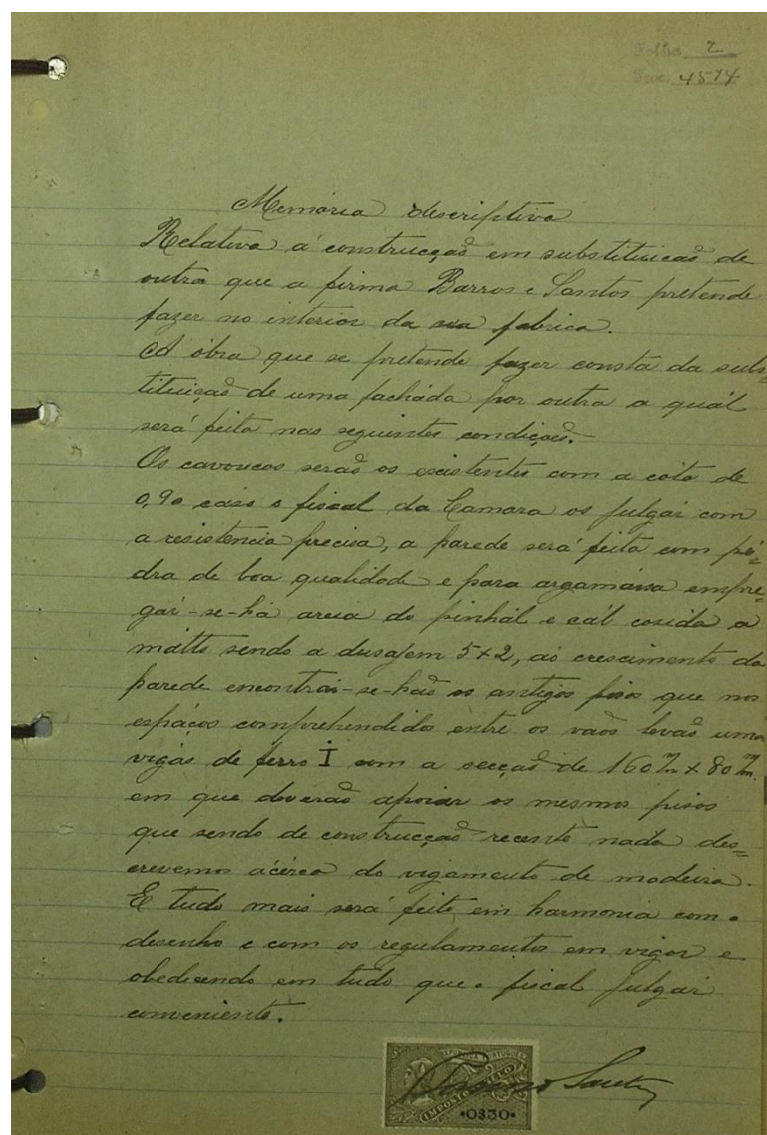 Folha 2
Proc. 4574
Memória descriptiva
Relativa á construcção em substituicaõ de
outra que a firma Barros e Santos pretende
fazer no interior da sua fabrica.
A óbra que se pretende fazer consta da subs=
tituicaõ de uma facháda por outra a quál
será feita nas seguintes condiçoẽs.
Os cavoucos seraõ os existentes com a cóta de
0,90 cáso o fiscal da Camara os julgár com
a resistencia precisa, a parede será feita com pé=
dra de boa qualidade e para argamássa empre=
gár-se-há areia do pinhál e cál cosida a
mátto sendo a dusajem 5x2, ao crescimento da
parede encontrár-se-haõ os antigos pisos que nos
espáços comprehendidos entre os vaõs levaõ uma
vigas de ferro I com a secçaõ de 160 m/m x 80 m/m.
em que deveraõ apoiár os mesmos pisos
que sendo de construcçaõ recente nada des=
crevemos ácêrca do vigamento de madeira.
E tudo mais será feito em harmonia com o
desenho e com os regulamentos em vigor e
obedecendo em tudo que o fiscal julgár
conveniente.
Santos
REPUBLICA PORTUGUESA
IMPOSTO DO SELO
•0$30•